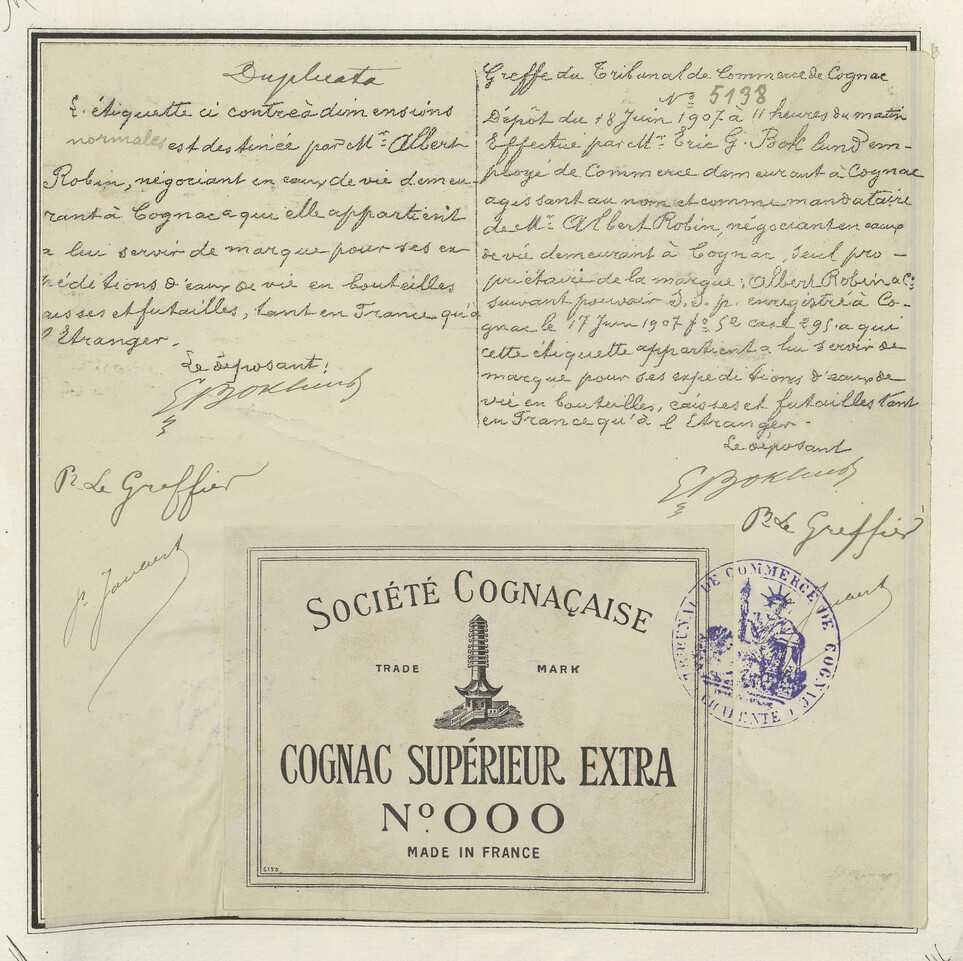 Duplicata
L'étiquette ci contre à dimensions
normales est destinée par Mr Albert
Robin, négociant en eaux de vie demeu-
rant à Cognac a qui elle appartient
a lui servir de marque pour ses ex
péditions d'eaux de vie en bouteilles
caisses et futailles, tant en France qu'à
l'Etranger.
Le déposant:
E Boklund
Pr. Le Greffier
Greffe du Tribunal de Commerce de Cognac
No 5138
Dépôt du 18 Juin 1907 à 11 heures du matin
Effectué par Mr Eric G. Boklund em-
ployé de Commerce demeurant à Cognac
agissant au nom et comme mandataire
de Mr Albert Robin, négociant en eaux
de vie demeurant à Cognac, seul pro-
priétaire de la marque: Albert Robin & Co
suivant pouvoir S.S.p. enregistré à Co-
gnac le 17 Juin 1907 fo 52 case 295. a qui
cette étiquette appartient a lui servir de
marque pour ses expéditions d'eaux de
vie en bouteilles, caisses et futailles tant
en France qu'à l'Etranger.
Le déposant
E Boklund
Pr. Le Greffier
TRIBUNAL DE COMMERCE DE COGNAC
CHARENTE
SOCIÉTÉ COGNAÇAISE
TRADE MARK
COGNAC SUPÉRIEUR EXTRA
No. 000
MADE IN FRANCE